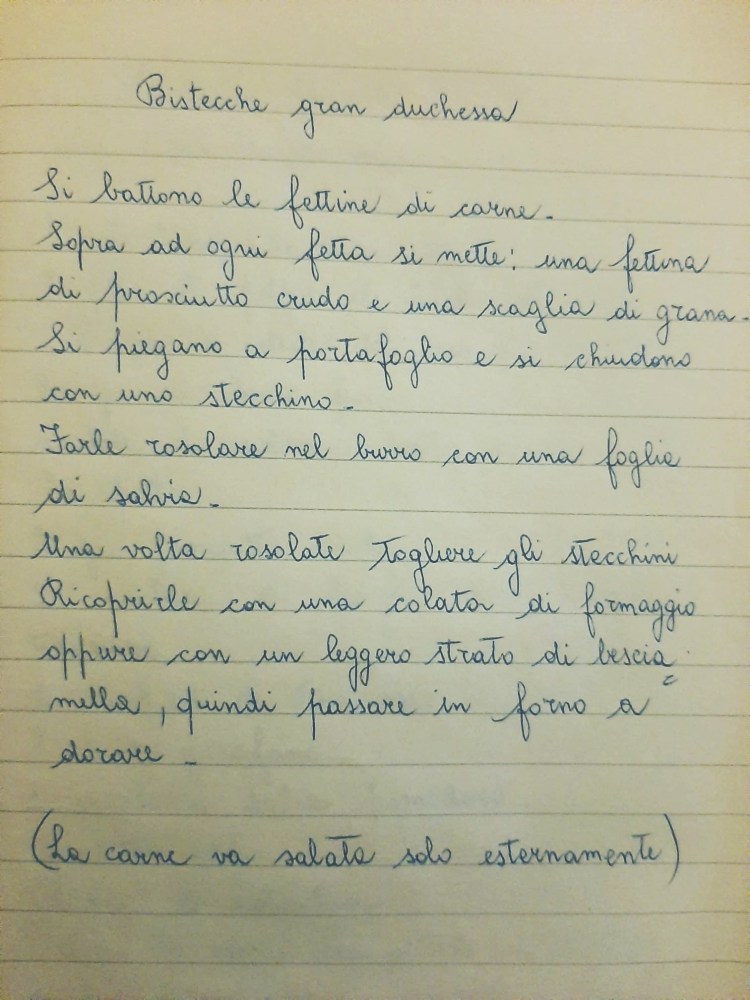 Bistecche gran duchessa
Si battono le fettine di carne.
Sopra ad ogni fetta si mette: una fettina
di prosciutto crudo e una scaglia di grana.
Si piegano a portafoglio e si chiudono
con uno stecchino.
Farle rosolare nel burro con una foglia
di salvia.
Una volta rosolate togliere gli stecchini
Ricoprirle con una colata di formaggio
oppure con un leggero strato di bescia=
mella, quindi passare in forno a
dorare.
(La carne va salata solo esternamente)